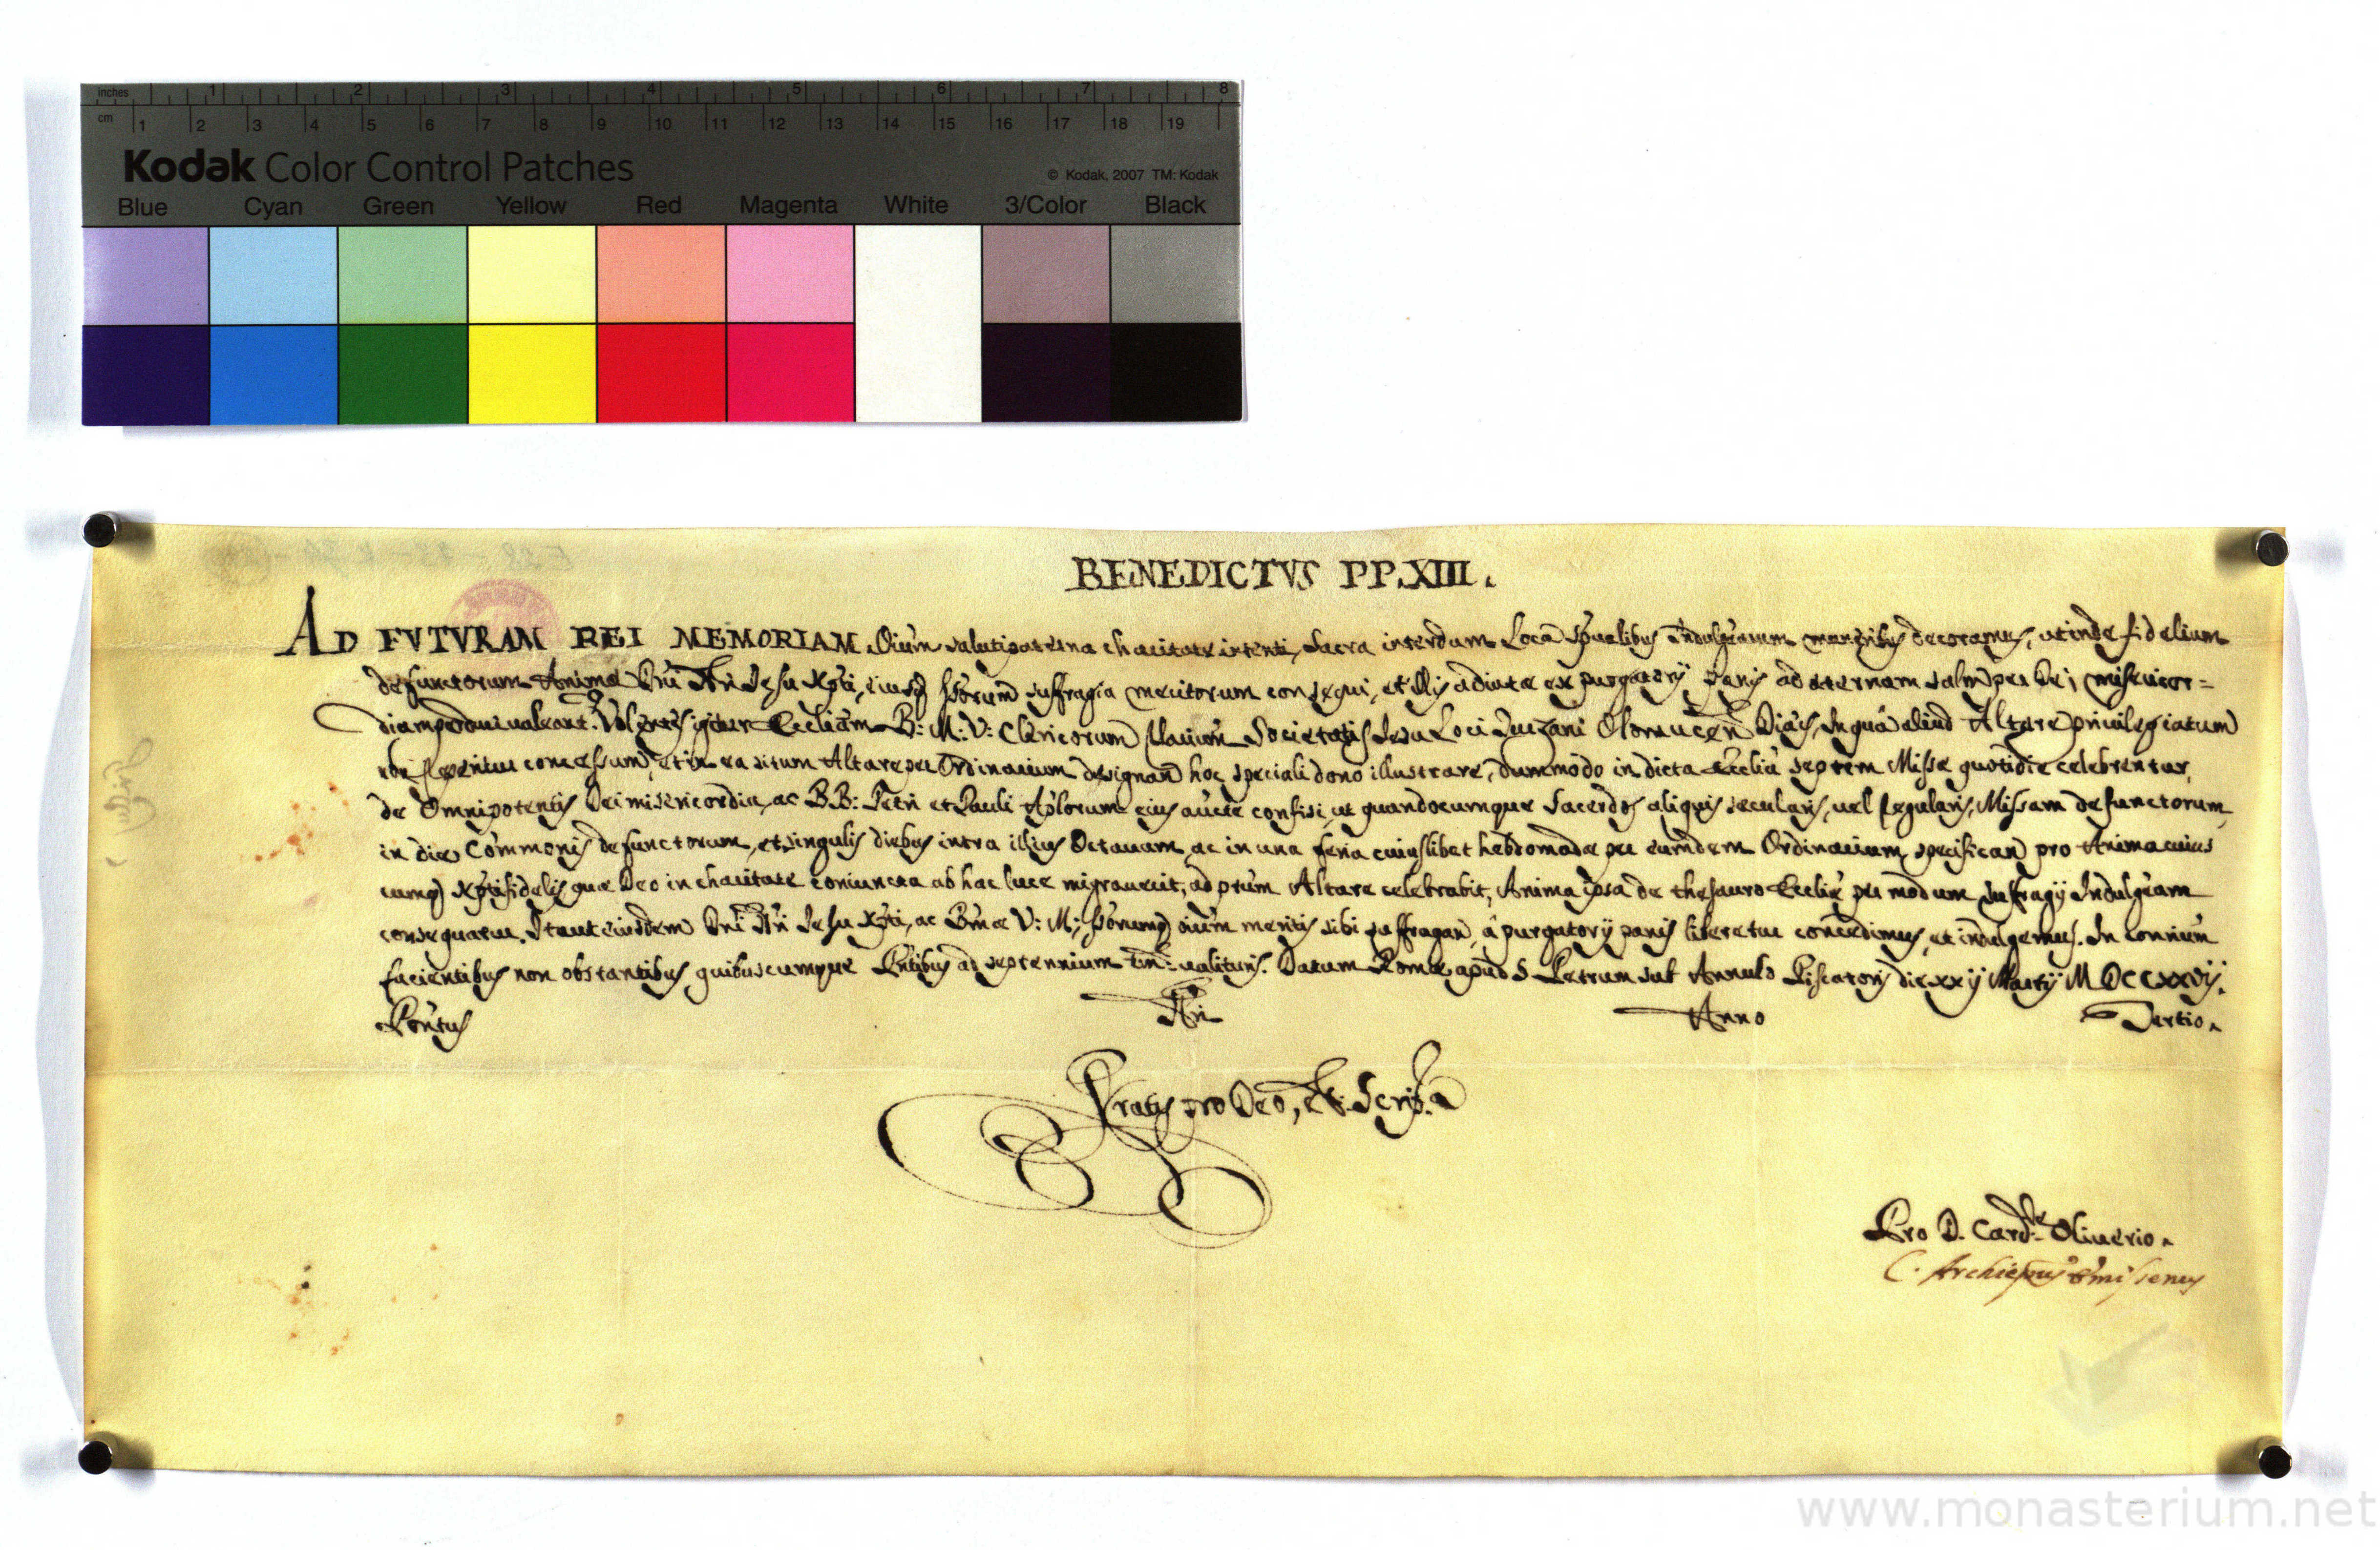 inches 1 2 3 4 5 6 7 8
cm 1 2 3 4 5 6 7 8 9 10 11 12 13 14 15 16 17 18 19
Kodak Color Control Patches
© Kodak, 2007 TM: Kodak
Blue Cyan Green Yellow Red Magenta White 3/Color Black
BENEDICTVS PP. XIII.
AD FVTVRAM REI MEMORIAM. Oium saluti paterna charitate intenti, Sacra interdum Loca Spualibus Indulgiarum muneribus decoramus, ut inde fidelium
defunctorum Animae Dni Nri Jesu Xpti, eiusq Sstorum suffragia meritorum consequi, et illis adiutae ex purgatorij paenis ad aeternam salm per Dei misericor=
diam perduci valeant. Volentes igitur Eccliam B: M: V: Clericorum Rlarium Societatis Jesu Loci Turzani Olomucen Diaecis, in quâ aliud Altare privilegiatum
non reperitur concessum, et in ea situm Altare per Ordinarium designan hoc speciali dono illustrare, dummodo in dicta Ecclia septem Missae quotidie celebrentur,
de Omnipotentis Dei misericordia, ac BB: Petri et Pauli Aplorum eius aucte confisi, ut quandocumque Sacerdos aliquis secularis, vel regularis, Missam defunctorum,
in die Commonis defunctorum, et singulis diebus intra illius Octavam, ac in una feria cuiuslibet hebdomadae per eumdem Ordinarium specifican pro Anima cuius
cumq Xptifidelis quae Deo in charitate coniuncta ab hac luce migraverit, ad prtum Altare celebrabit, Anima ipsa de thesauro Eccliae per modum suffragij Indulgiam
consequatur. Ita ut eiusdem Dni Nri Jesu Xpti, ac Bmae V: M:, Sstorumq oium meritis sibi suffragan, à purgatorij paenis liberetur concedimus, et indulgemus. In conrium
facientibus non obstantibus quibuscumque Pntibus ad septennium tm: valituris. Datum Romae apud S. Petrum sub Annulo Piscatoris die xxij Martij MDCCXXVIJ.
Pontus Nri Anno Tertio.
Gratis pro Deo, et Scripra
Pro D. Card.le Oliverio.
C. Archiepus Emissenus
www.monasterium.net